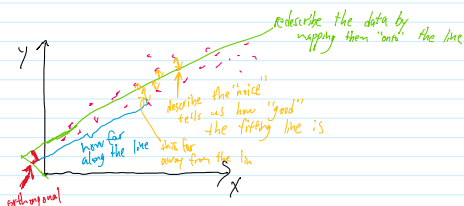 redescribe the data by
mapping them "onto" the line
y
describe the "noise"
tells us how "good"
the fitting line is
how far
along the line
this far
away from the lin
x
orthogonal